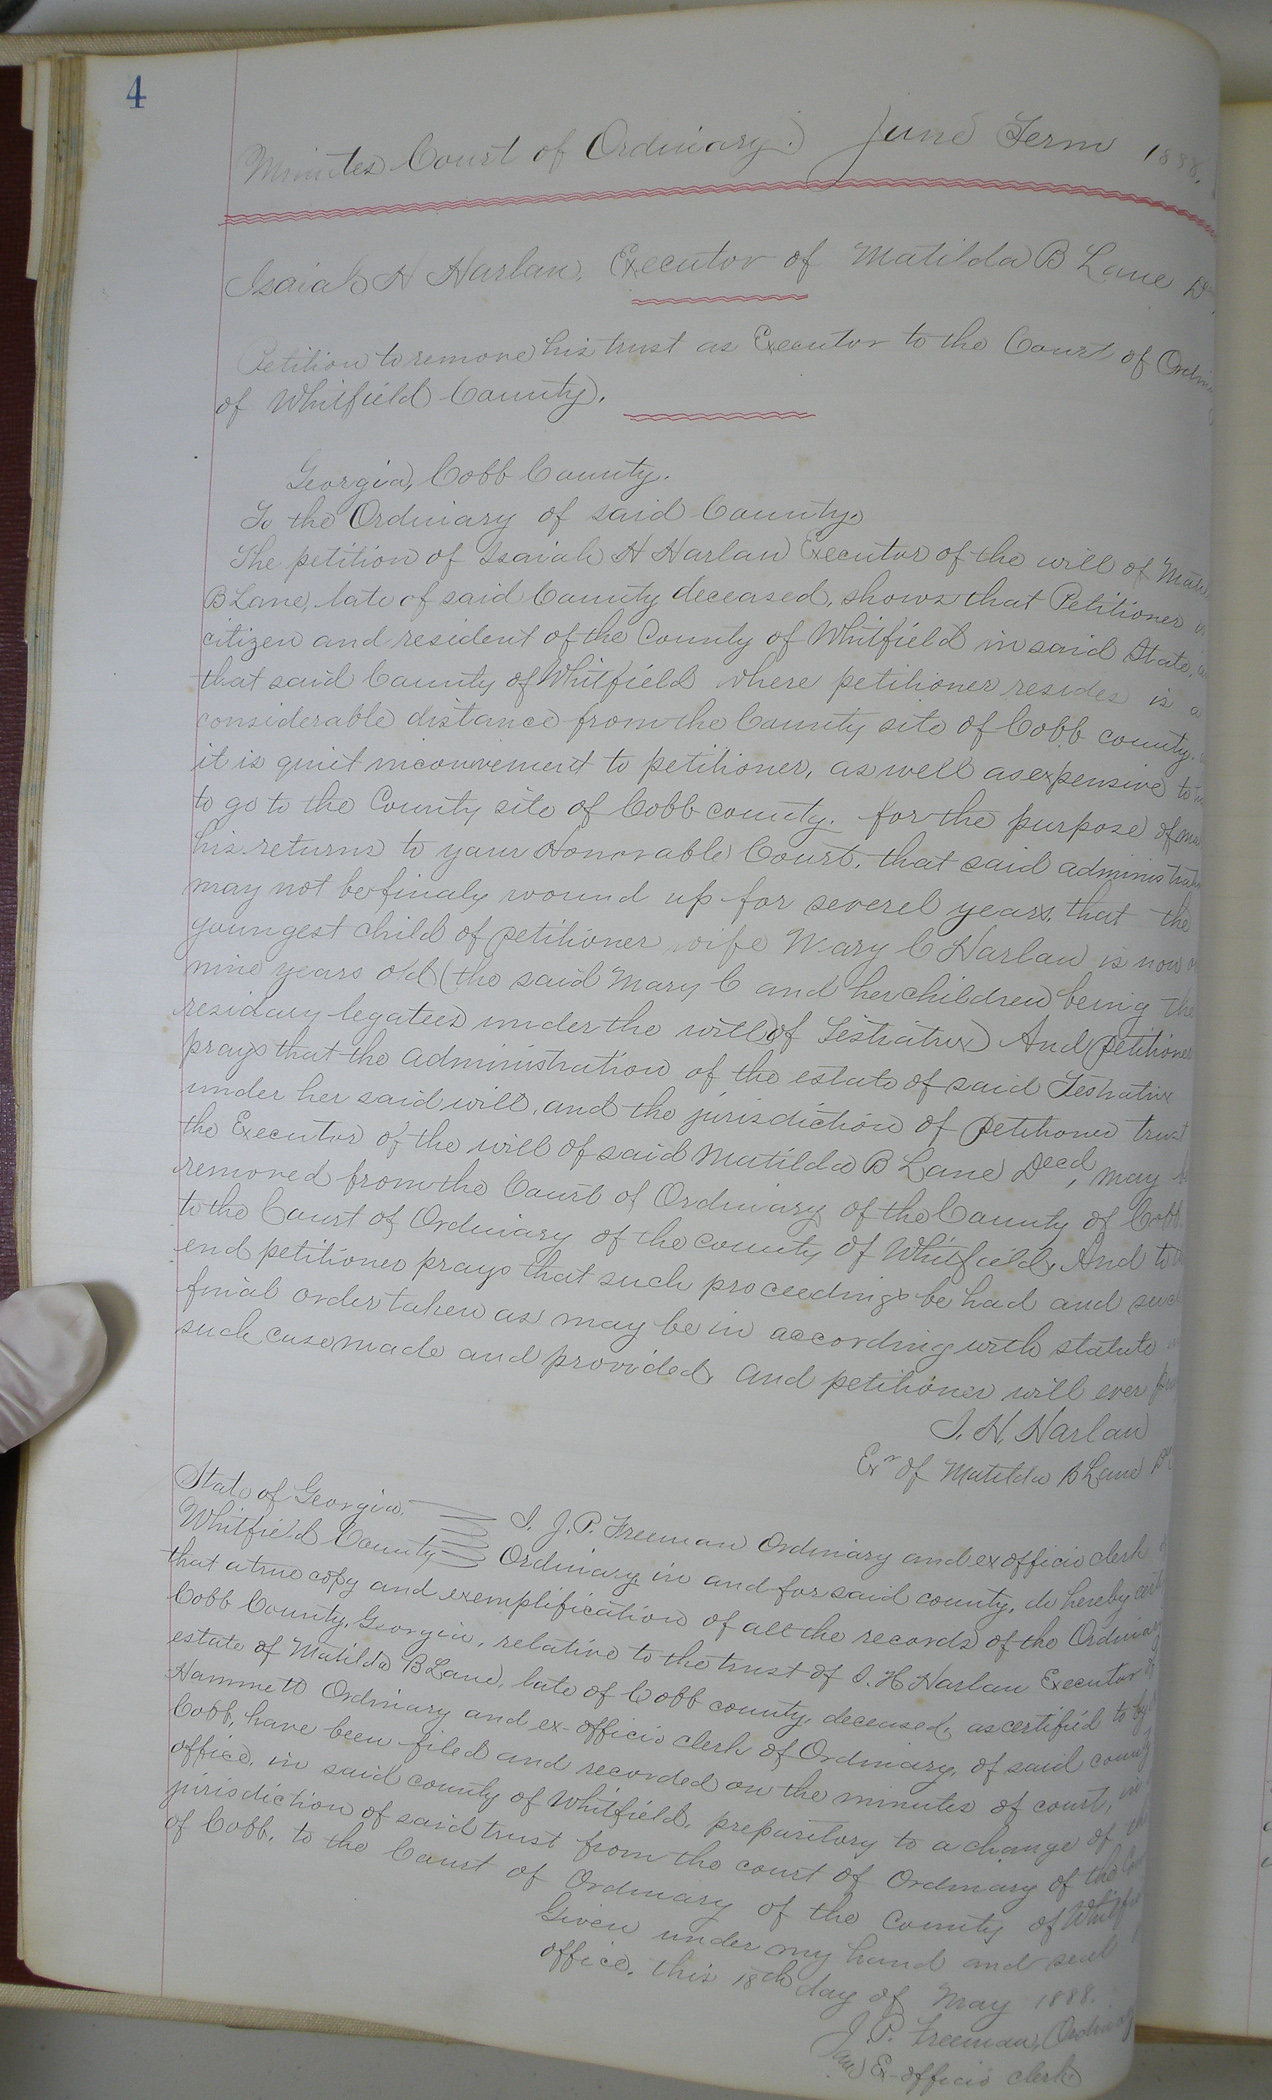 4
Minutes Court of Ordinary. June Term 1888.
Isaiah H Harlan, Executor of Matilda B Lane
Petition to remove his trust as Executor to the Court of
of Whitfield County.
Georgia, Cobb County.
To the Ordinary of said County.
The petition of Isaiah H Harlan Executor of the will of
B Lane, late of said County deceased, shows that Petitioner
citizen and resident of the County of Whitfield in said State,
that said County of Whitfield where petitioner resides is a
considerable distance from the County site of Cobb county.
it is quiet inconvenient to petitioner, as well as expensive to
to go to the County site of Cobb county. for the purpose of
his returns to your Honorable Court. that said
may not be finaly wound up for severel years. that the
youngest child of petitioner wife Mary C Harlan is now
nine years old (the said Mary C and her children being the
residary legatees under the will of Testatrix) And petitioner
prays that the administration of the estate of said Testatrix
under her said will, and the jurisdiction of petitioner trust
the Executor of the will of said Matilda B Lane Decd, may
removed from the Court of Ordinary of the County of Cobb.
to the Court of Ordinary of the county of Whitfield, And to
end petitioner prays that such proceedings be had and such
final order taken as may be in according with statute
such case made and provided, and petitioner will ever
I. H. Harlan
Exr of Matilda B Lane
State of Georgia. I. J. P. Freeman Ordinary and ex officio clerk
Whitfield County Ordinary, in and for said county, do hereby
that a true copy and exemplification of all the records of the
Cobb County, Georgia, relative to the trust of I. H Harlan Executor
estate of Matilda B Lane, late of Cobb county, deceased, as certified to by
Hammett Ordinary and ex-officio clerk of Ordinary, of said county
Cobb, have been filed and recorded on the minutes of court, in
office, in said county of Whitfield, preparitory to a change of
jurisdiction of said trust from the court of Ordinary of the
of Cobb, to the Court of Ordinary of the County of
Given under my hand and seal
office, this 18th day of May 1888.
J. P. Freeman,
and Ex-officio clerk